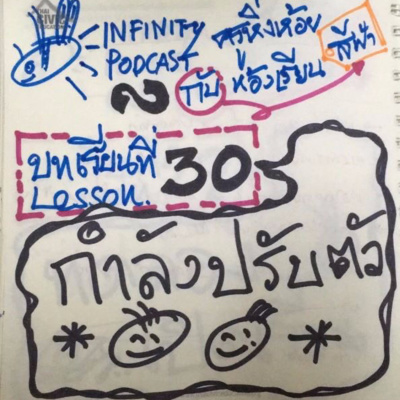 INFINITY ครูหิ่งห้อย
PODCAST กับ ห้องเรียน สีฟ้า
บทเรียนที่ 30
Lesson.
กำลังปรับตัว